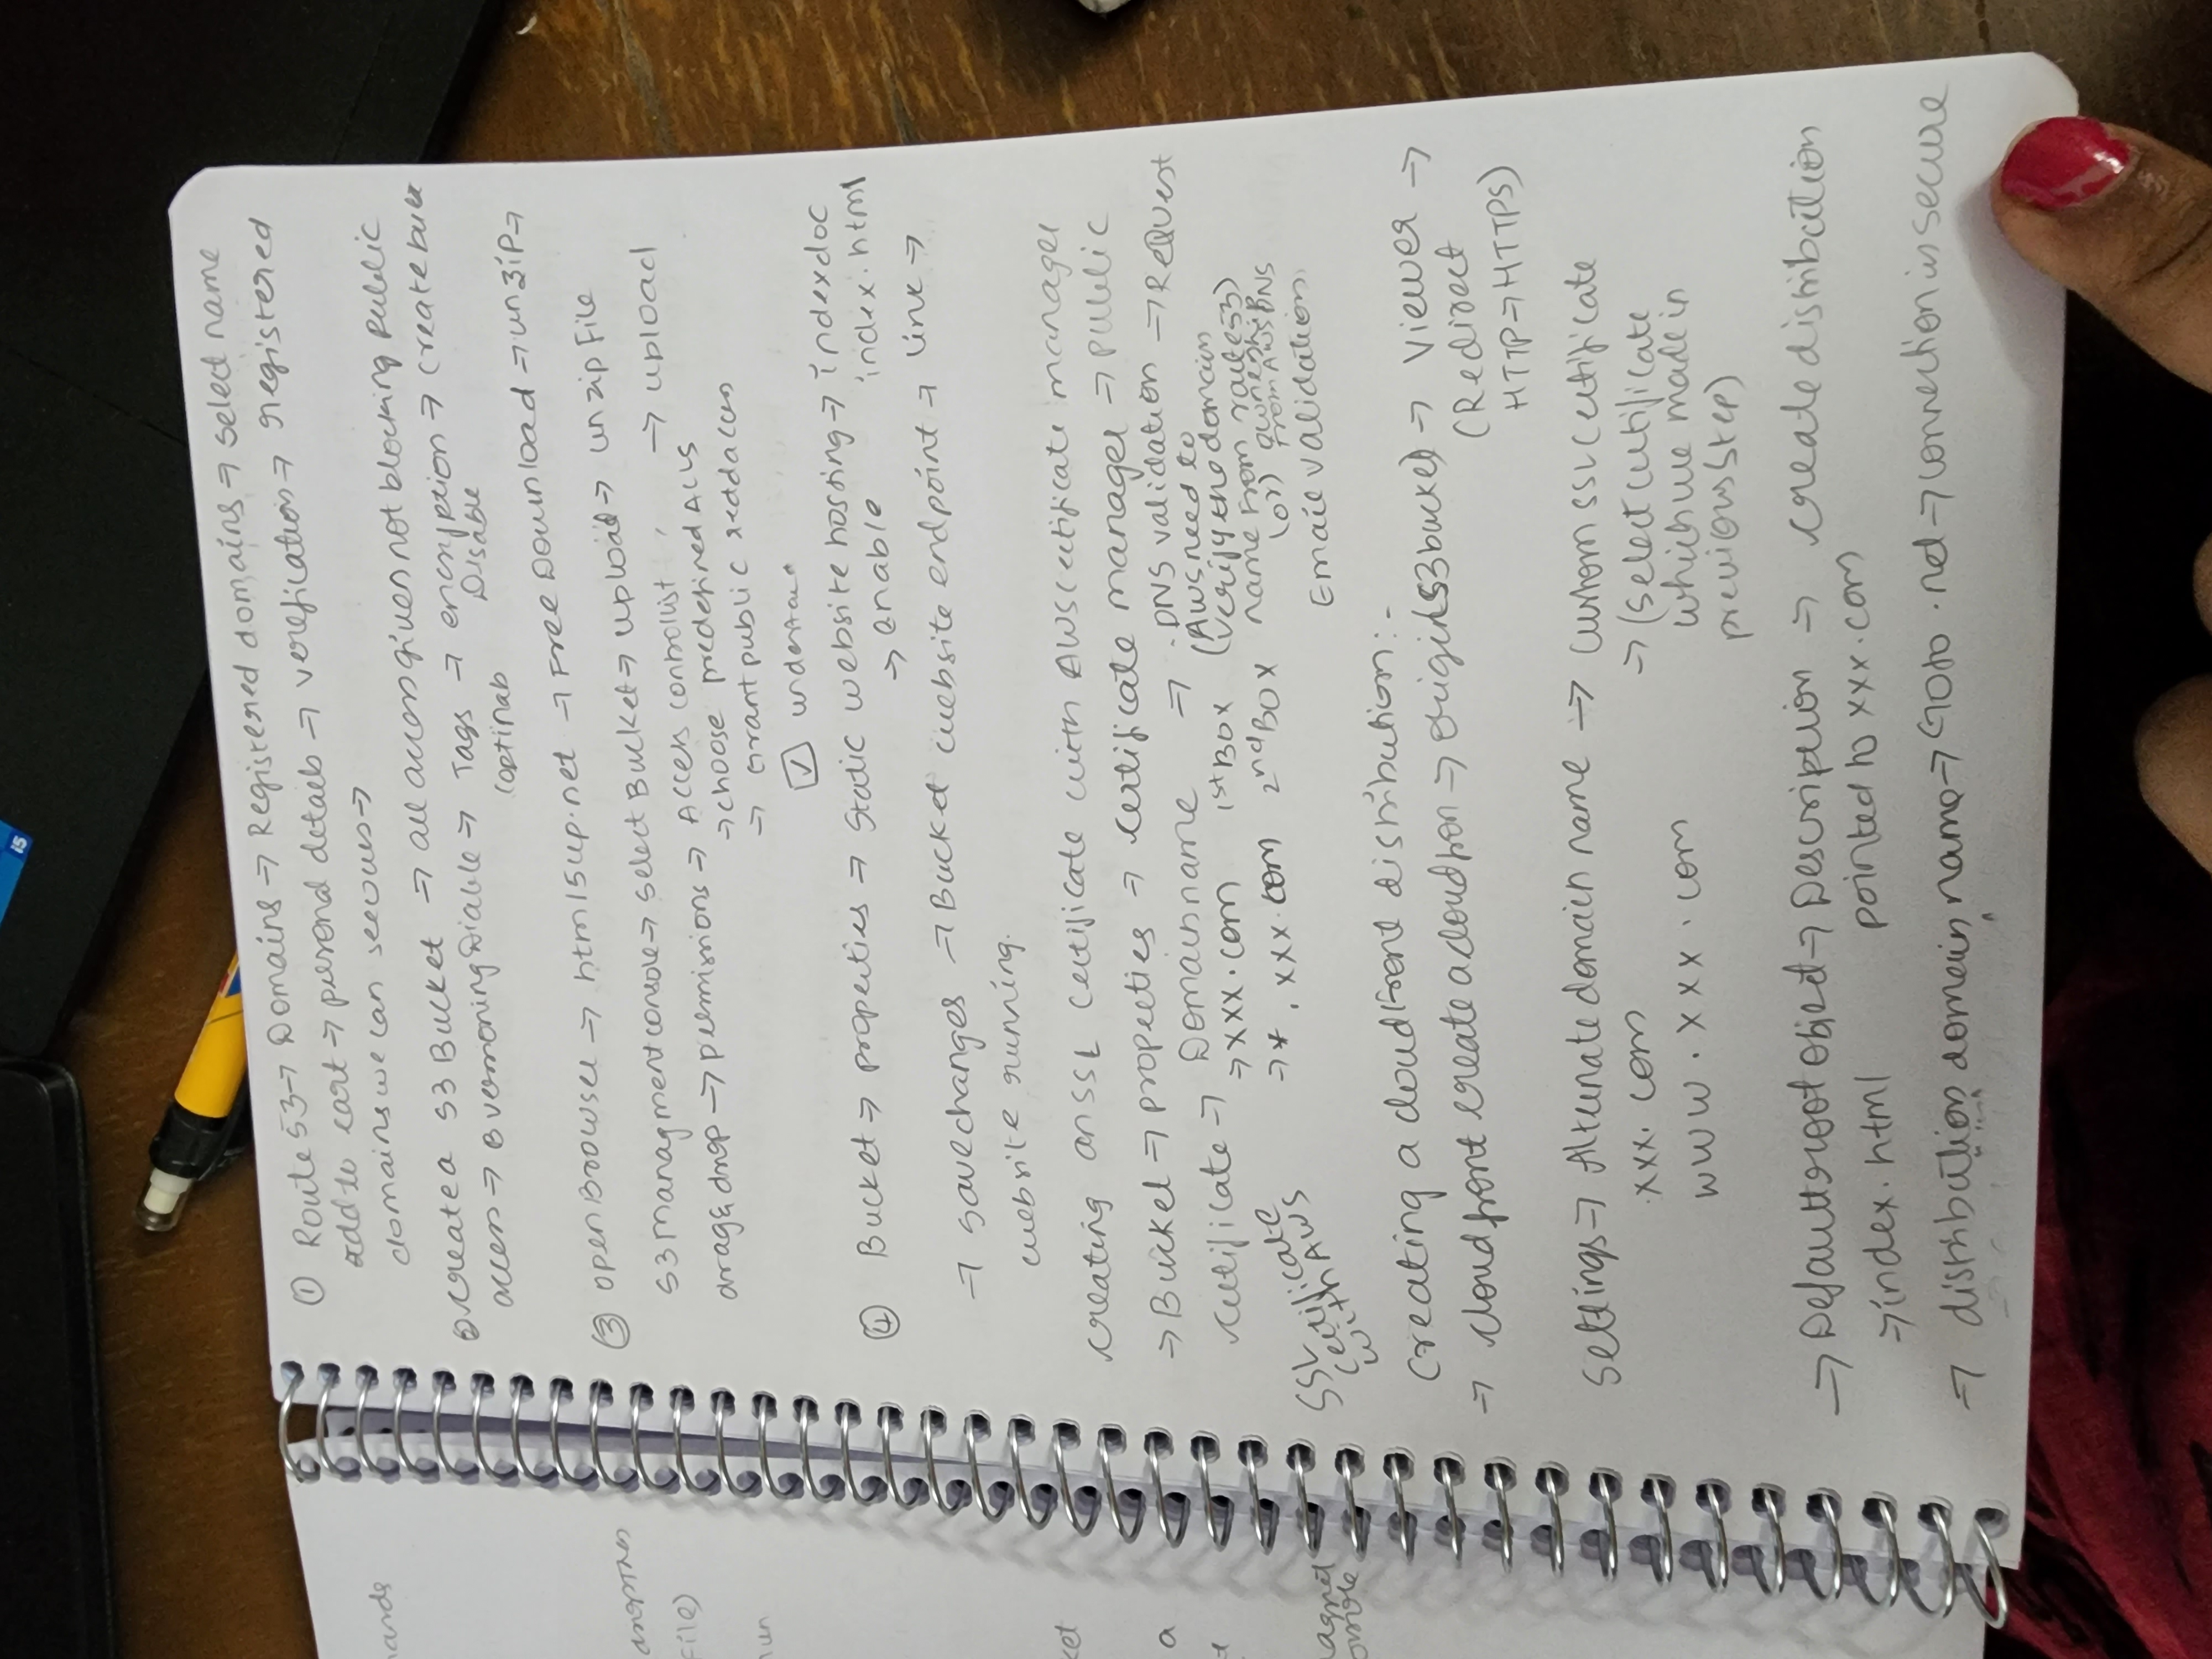 i5
① Route 53 → Domains → Registered domains → select name
add to cart → personal details → verification → registered
domains we can →
② create a S3 Bucket → all access given not blocking public
access → versioning Diable → Tags → encryption → create
(optinal) Disable
③ open Browser → html5up.net → Free Download → unzip →
S3 Managment console → select Bucket → upload → unzip File
drag & drop → permissions → Access control list → upload
→ choose predefined ACLS
→ Grant public
☑
④ Bucket → properties → Static website hosting → index doc
→ enable index.html
→ save changes → Bucket website endpoint → link →
website running.
creating an SSL certificate with AWS certificate manager
→ Bucket → properties → certificate manager → public
certificate → Domain name → . DNS validation → ReQuest
→ xxx.com 1st BOX (AWS need to
verify the domain
→ *.xxx.com 2nd BOX name From route 53)
(or) ownership
From AWS DNS
Email validation
SSL
certificate
with AWS
Creating a cloudfront distribution:-
→ cloudfront create a → origin (S3 bucket) → Viewer →
(Redirect
HTTP → HTTPS)
Settings → Alternate domain name → custom SSL certificate
xxx.com → (select certificate
www.xxx.com which we made in
previous step)
→ Default root object → Description → create distribution
→ index.html pointed to xxx.com
→ distribution domain name → Goto .net → connection is secure